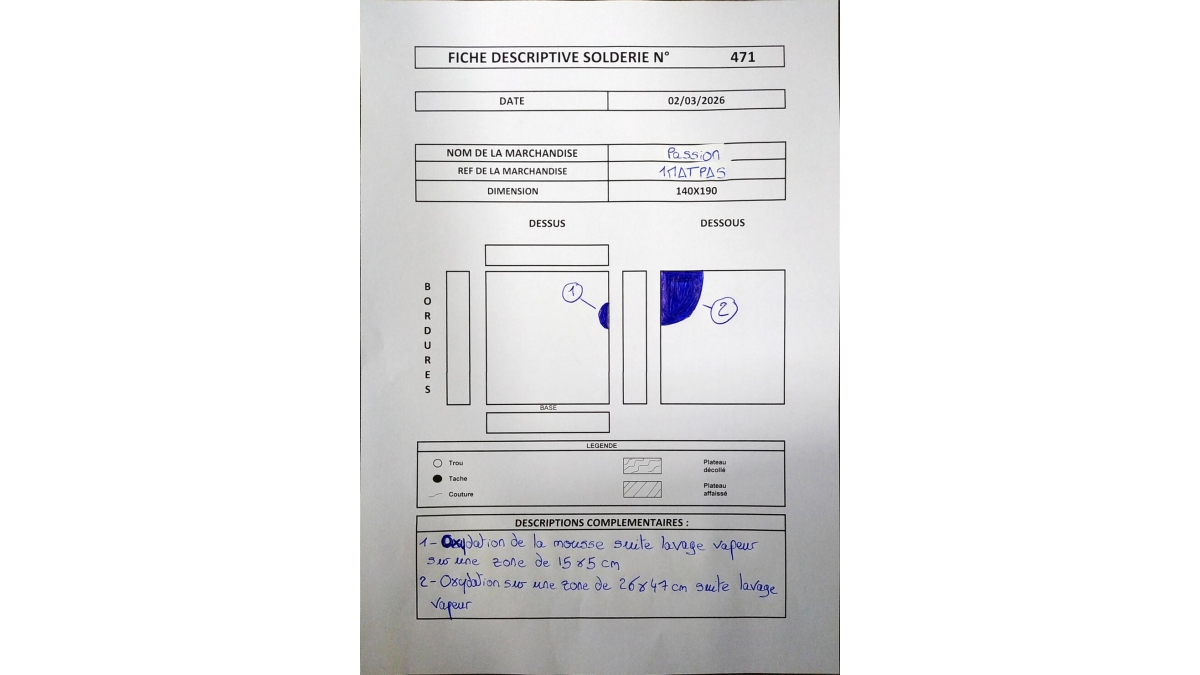 FICHE DESCRIPTIVE SOLDERIE N° 471
DATE 02/03/2026
NOM DE LA MARCHANDISE Passion
REF DE LA MARCHANDISE 1MATPAS
DIMENSION 140X190
DESSUS DESSOUS
BORDURES
1
2
BASE
LEGENDE
Trou
Tache
Couture
Plateau
décollé
Plateau
affaissé
DESCRIPTIONS COMPLEMENTAIRES :
1- Oxydation de la mousse suite lavage vapeur
sur une zone de 15x5 cm
2- Oxydation sur une zone de 26x47 cm suite lavage
vapeur